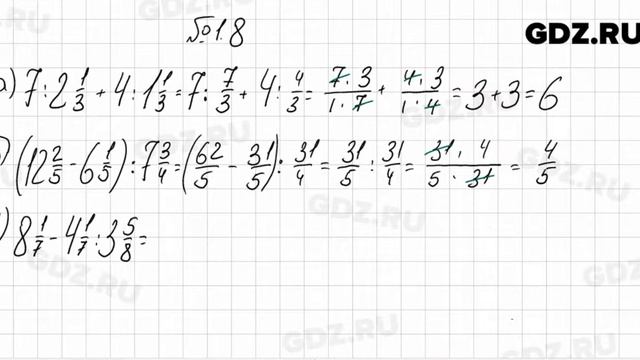 №1.8
GDZ.RU
а) 7 : 2 1/3 + 4 : 1 1/3 = 7 : 7/3 + 4 : 4/3 = 7·3/1·7 + 4·3/1·4 = 3 + 3 = 6
) (12 2/5 - 6 1/5) : 7 3/4 = (62/5 - 31/5) : 31/4 = 31/5 : 31/4 = 31·4/5·31 = 4/5
) 8 1/7 - 4 1/7 : 3 5/8 =
GDZ.RU
GDZ.RU
GDZ.RU
GDZ.RU
GDZ.RU